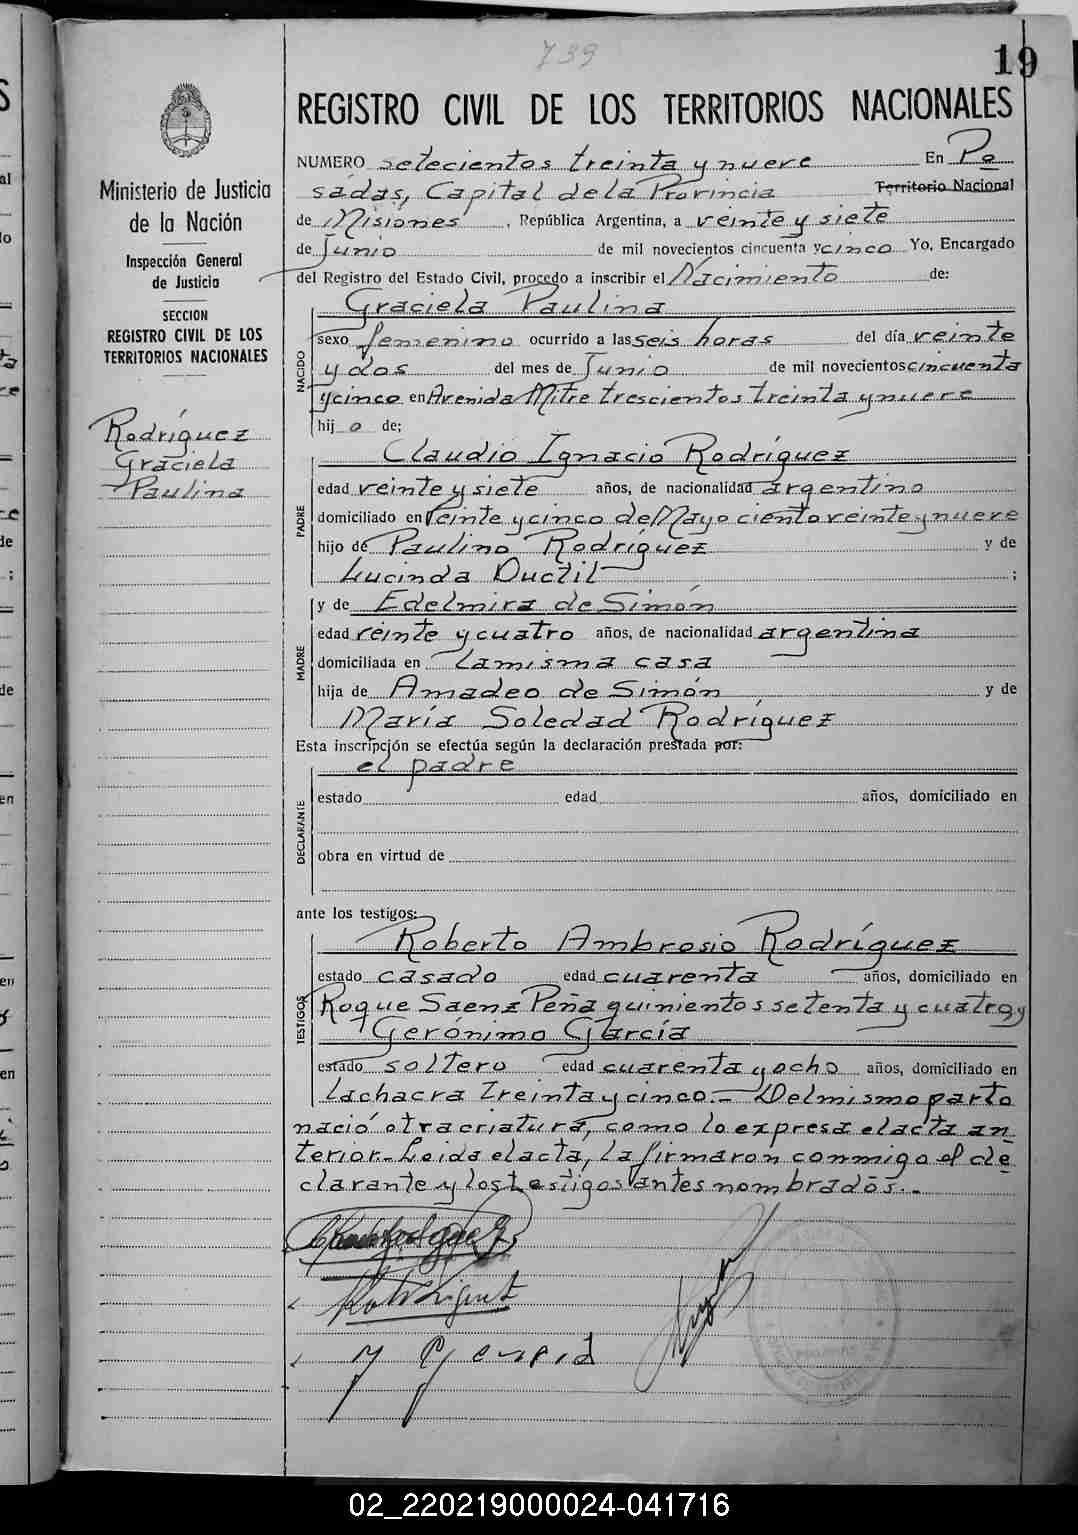 739
19
REGISTRO CIVIL DE LOS TERRITORIOS NACIONALES
Ministerio de Justicia
de la Nación
Inspección General
de Justicia
SECCION
REGISTRO CIVIL DE LOS
TERRITORIOS NACIONALES
Rodríguez
Graciela
Paulina
NUMERO setecientos treinta y nueve En Po
sadas, Capital de la Provincia Territorio Nacional
de Misiones, República Argentina, a veinte y siete
de Junio de mil novecientos cincuenta y cinco Yo, Encargado
del Registro del Estado Civil, procedo a inscribir el Nacimiento de:
Graciela Paulina
NACIDO
sexo femenino ocurrido a las seis horas del día veinte
y dos del mes de Junio de mil novecientos cincuenta
y cinco en Avenida Mitre trescientos treinta y nueve
hij a de;
Claudio Ignacio Rodríguez
PADRE
edad veinte y siete años, de nacionalidad argentino
domiciliado en Veinte y cinco de Mayo ciento veinte y nueve
hijo de Paulino Rodríguez y de
Lucinda Ductil ;
y de Edelmira de Simón
MADRE
edad veinte y cuatro años, de nacionalidad argentina
domiciliada en la misma casa
hija de Amadeo de Simón y de
María Soledad Rodríguez
Esta inscripción se efectúa según la declaración prestada por:
el padre
DECLARANTE
estado edad años, domiciliado en
obra en virtud de
ante los testigos:
Roberto Ambrosio Rodríguez
TESTIGOS
estado casado edad cuarenta años, domiciliado en
Roque Saenz Peña quinientos setenta y cuatro y
Gerónimo García
estado soltero edad cuarenta y ocho años, domiciliado en
la chacra Treinta y cinco.- Del mismo parto
nació otra criatura, como lo expresa el acta an
terior.- Leida el acta, la firmaron conmigo el de
clarante y los testigos antes nombrados.-
02_220219000024-041716